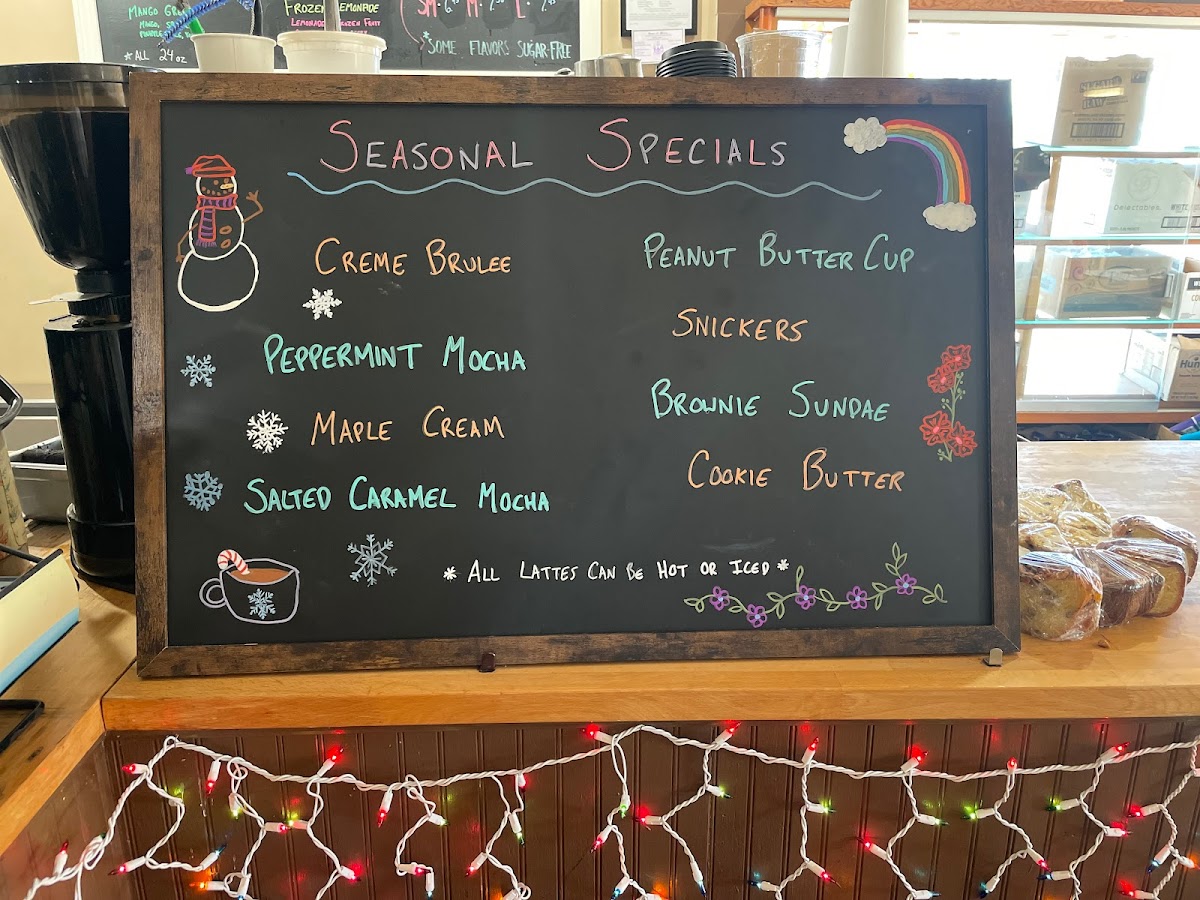 Mango Gr
Frozen Lemonade
*All 24oz
*Some Flavors Sugar-Free
Seasonal Specials
Creme Brulee
Peppermint Mocha
Maple Cream
Salted Caramel Mocha
Peanut Butter Cup
Snickers
Brownie Sundae
Cookie Butter
*All Lattes Can Be Hot or Iced*